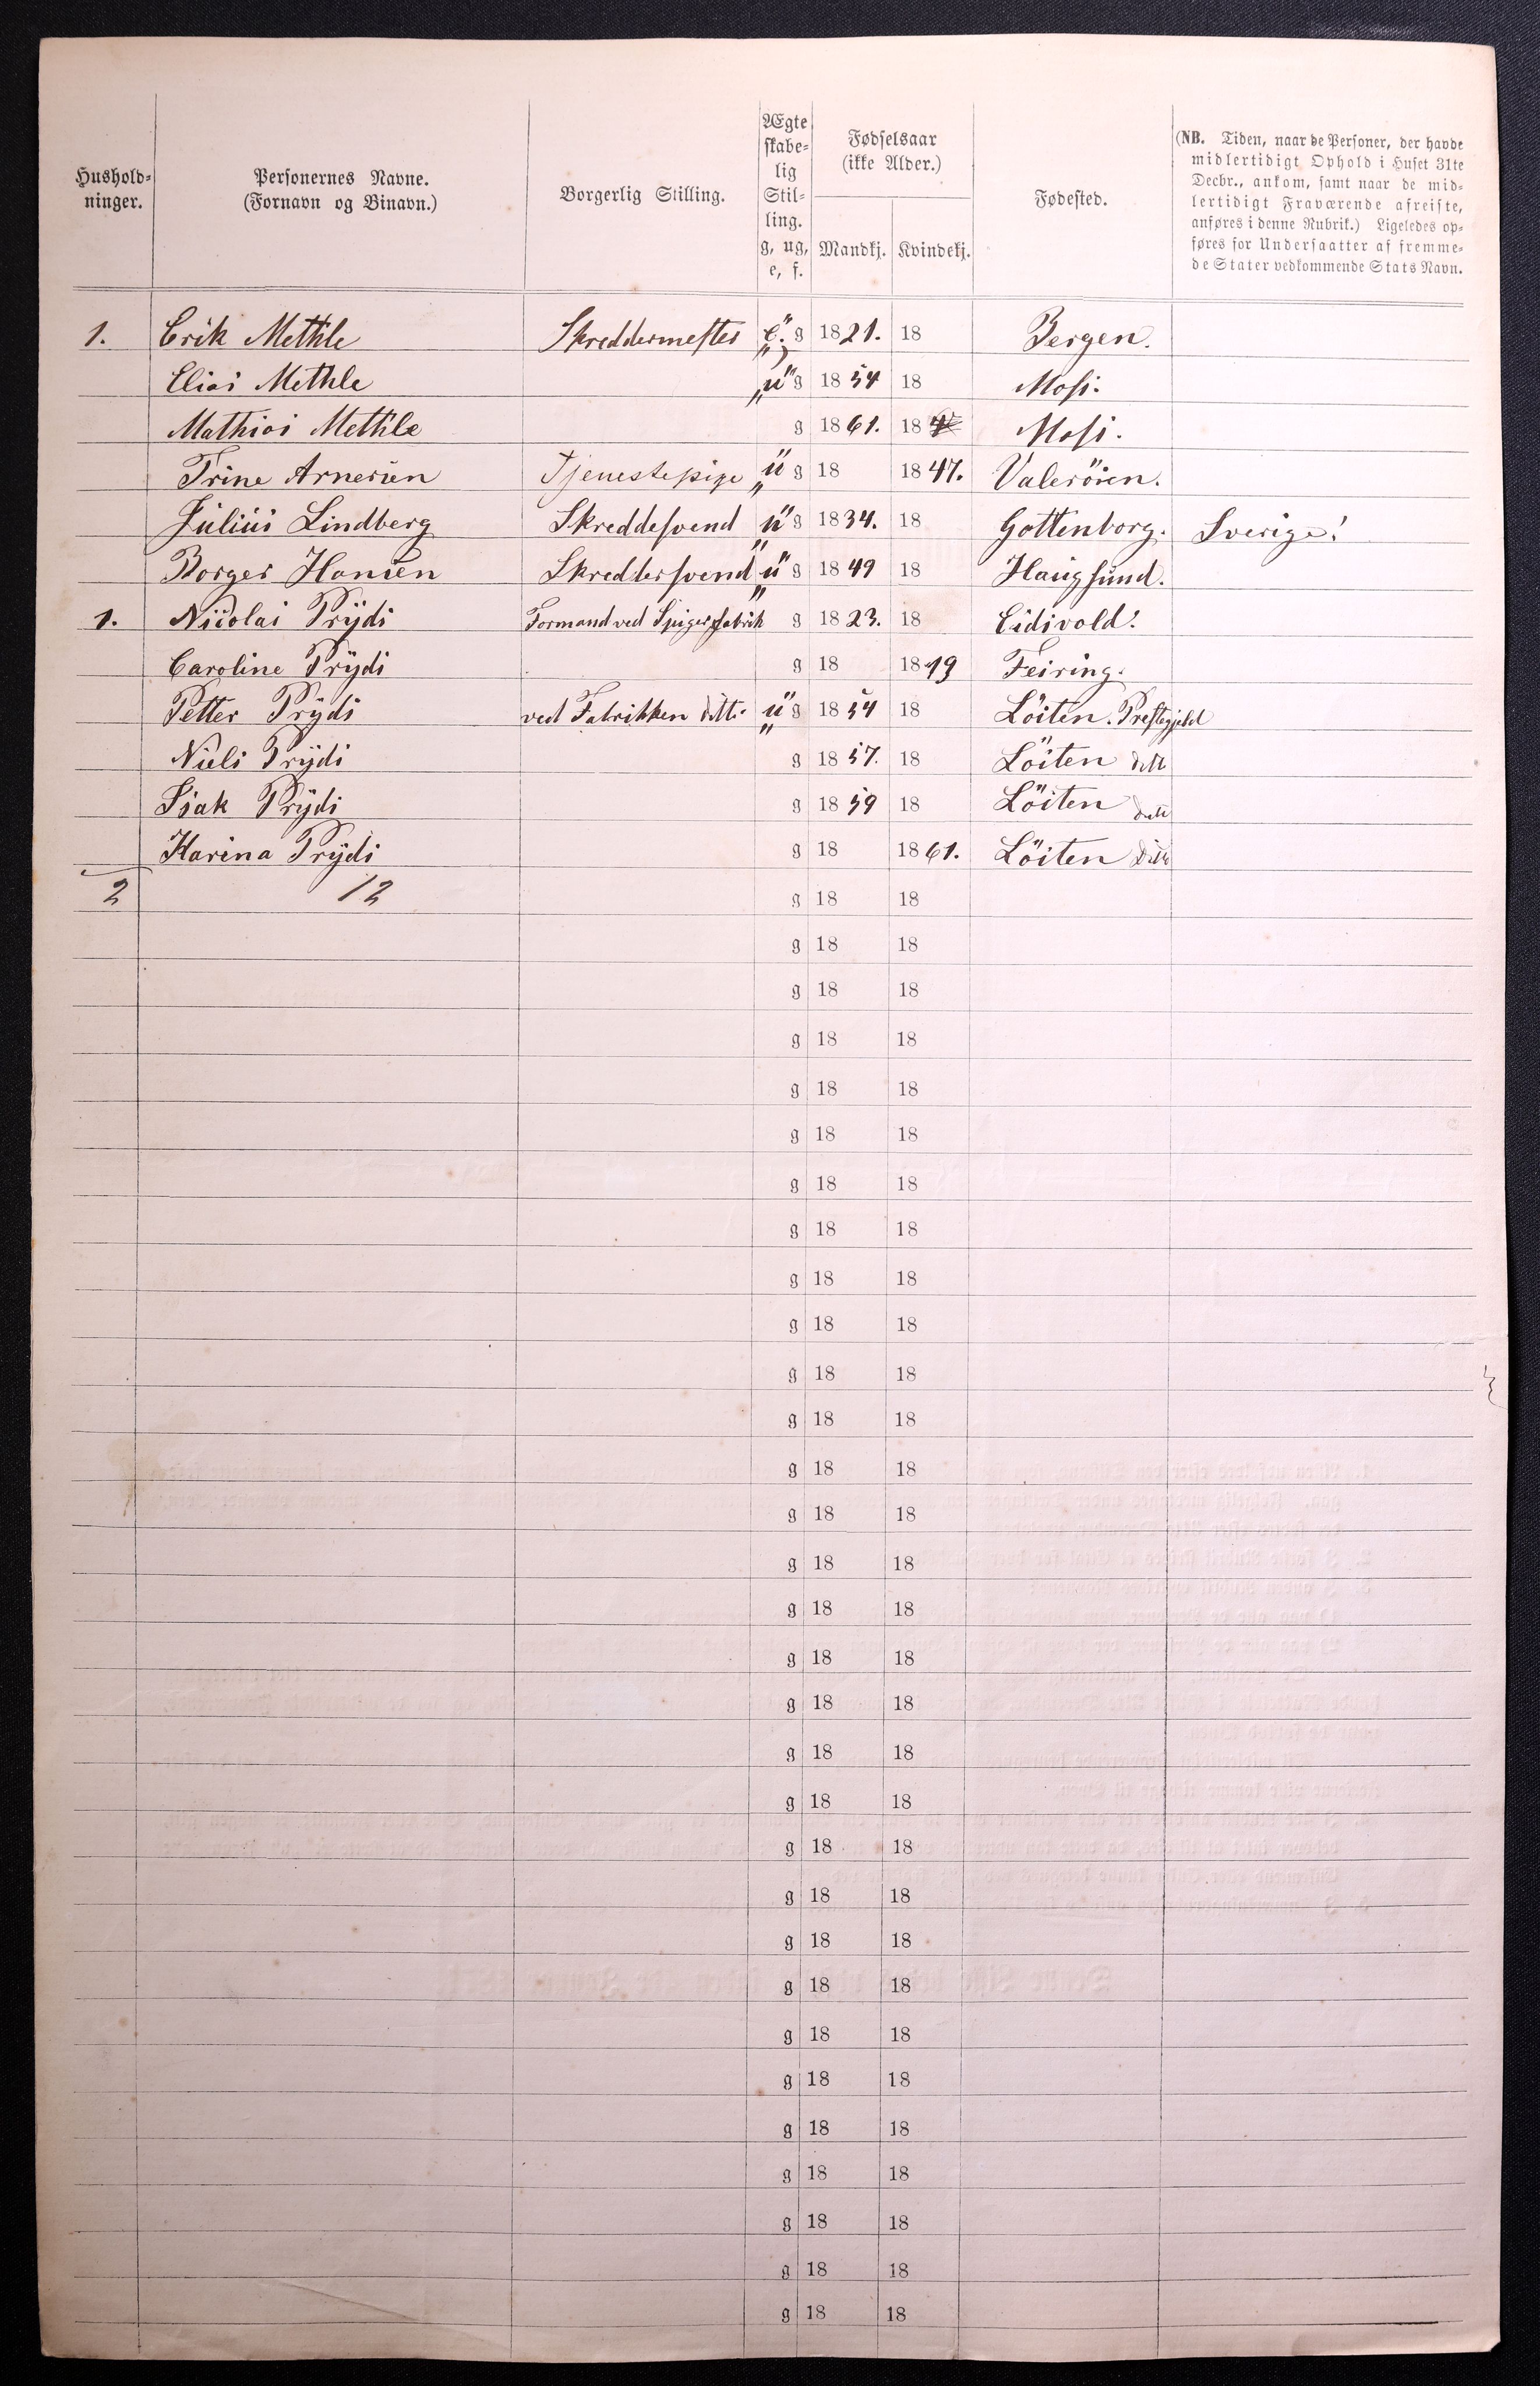 Hushold-ninger. Personernes Navne. (Fornavn og Binavn.) Borgerlig Stilling. Ægteskabe-lig Stil-ling. g, ug, e, f. Fødselsaar (ikke Alder.) Mandkj. Kvindekj. Fødested.
(NB. Tiden, naar de Personer, der havde
midlertidigt Ophold i Huset 31te
Decbr., ankom, samt naar de mid-
lertidigt Fraværende afreiste,
anføres i denne Rubrik.) Ligeledes op-
føres for Undersaatter af fremme-
de Stater vedkommende Stats Navn.
1. Erik Methle Skreddermester "e". g 1821. 18 Bergen.
Elias Methle "u" g 1854 18 Moss.
Mathias Methle g 1861. 18 Moss.
Trine Arnesen Tjenestepige "u" g 18 1847. Valeröien.
Julius Lindberg Skreddesvend "u" g 1834. 18 Gottenborg. Sverige!
Borger Hansen Skreddersvend "u" g 1849 18 Haugsund.
1. Nicolai Prydz Formand ved Spigerfabrik g 1823. 18 Eidsvold.
Caroline Prydz g 18 1819 Feiring.
Petter Prydz ved Fabrikken ditto "u" g 1854 18 Löiten. Prestegjeld
Niels Prydz g 1857. 18 Löiten ditto
Isak Prydz g 1859 18 Löiten ditto
Karina Prydz g 18 1861. Löiten ditto
2 12 g 18 18
g 18 18
g 18 18
g 18 18
g 18 18
g 18 18
g 18 18
g 18 18
g 18 18
g 18 18
g 18 18
g 18 18
g 18 18
g 18 18
g 18 18
g 18 18
g 18 18
g 18 18
g 18 18
g 18 18
g 18 18
g 18 18
g 18 18
g 18 18
g 18 18
g 18 18
g 18 18
g 18 18
g 18 18
g 18 18
g 18 18